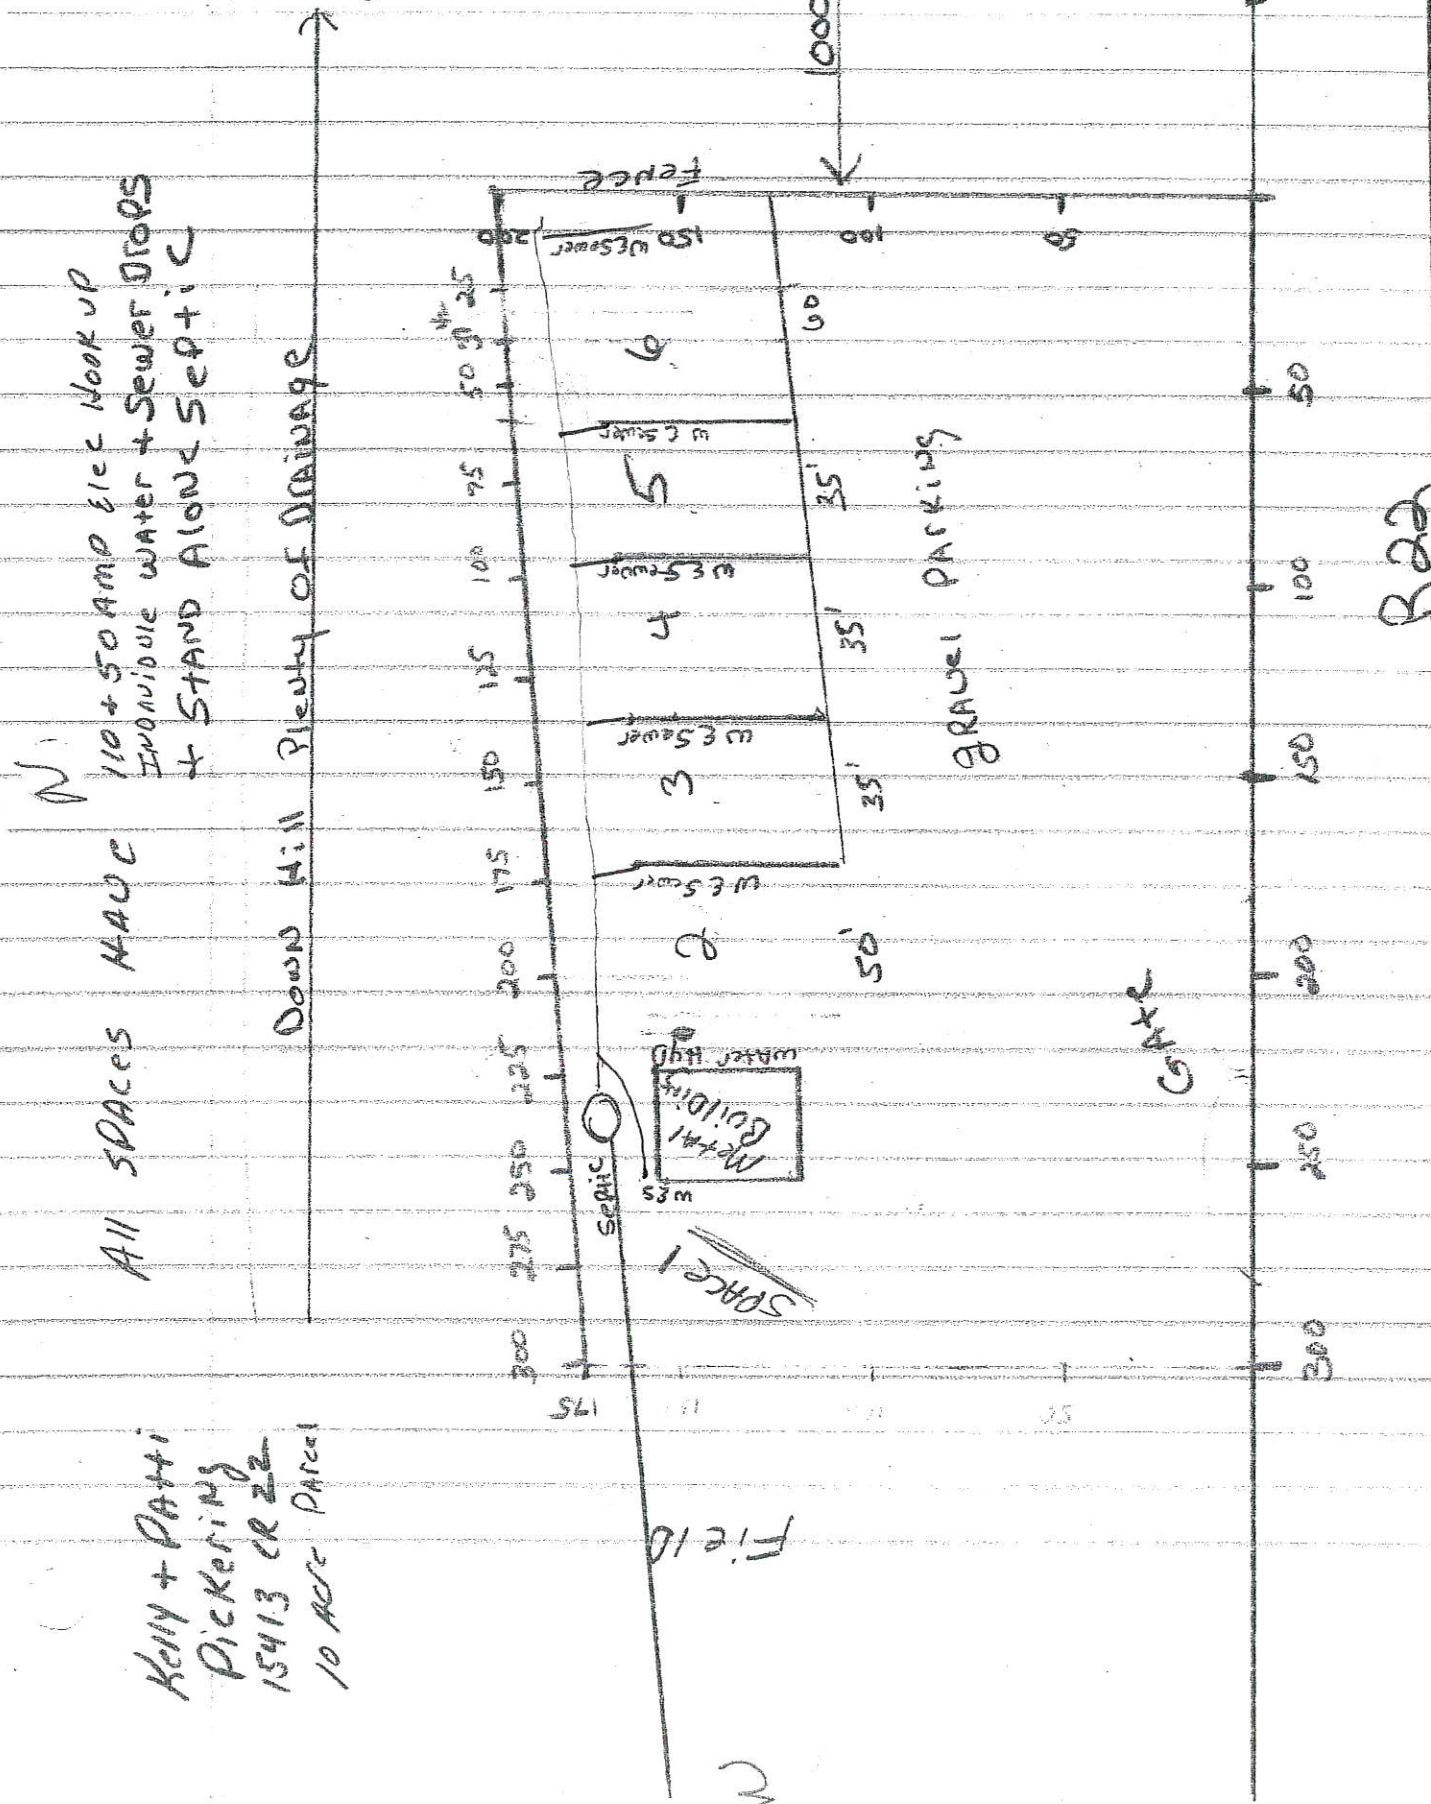 Kelly + PAtti
Pickering
15413 CR 22
10 Acre Parcel
N
All SPAces HAve 110 + 50 AMP Elec Hook UP
INDIVIDULE WAter + Sewer DroPS
+ STAND AloNe SePtic
DowN Hill Plenty of DrAiNAge
300 275 250 225 200 175 150 125 100 75 50 25
200
175
150
100
50
FeNce
1000
SePtic
W E S
MetAl
BuilDiNg
WAter HyD
SPAce 1
2
3
4
5
6
W E Sewer
W E Sewer
W E Sewer
W E Sewer
W E Sewer
50'
35'
35'
35'
60
FielD
grAvel PArKiNg
GAte
300 250 200 150 100 50
R 22